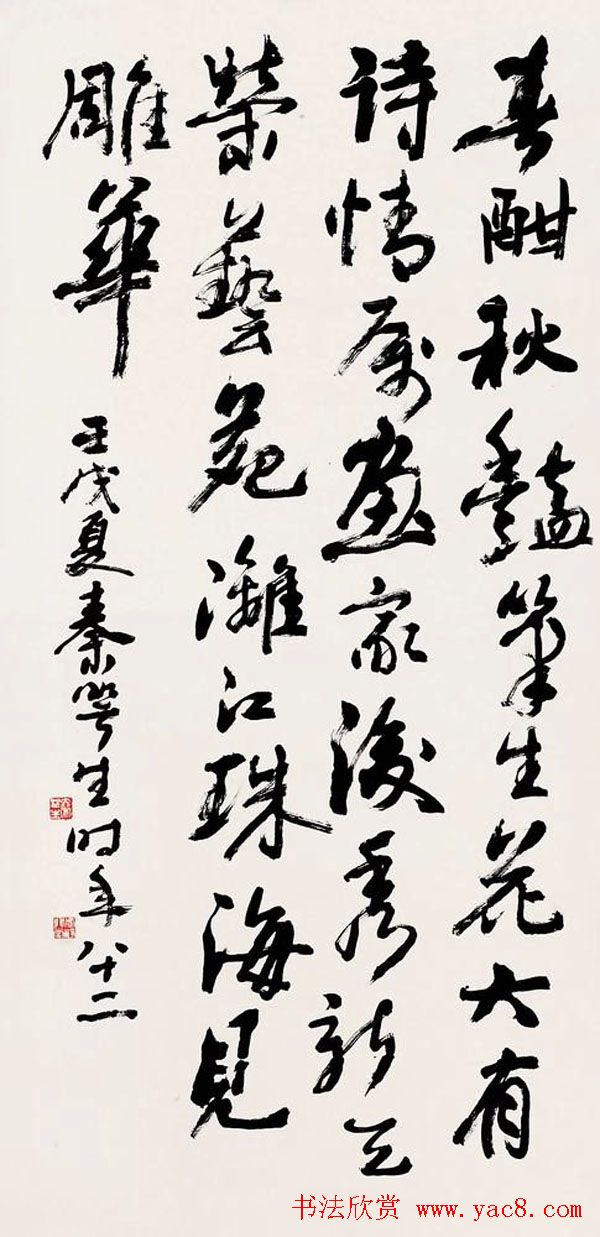 春酣秋豔筆生花大有
诗情屬畫家後秀
榮藝苑灕江珠海見
雕華
壬戌夏秦咢生时年八十二
书法欣赏 www.yac8.com